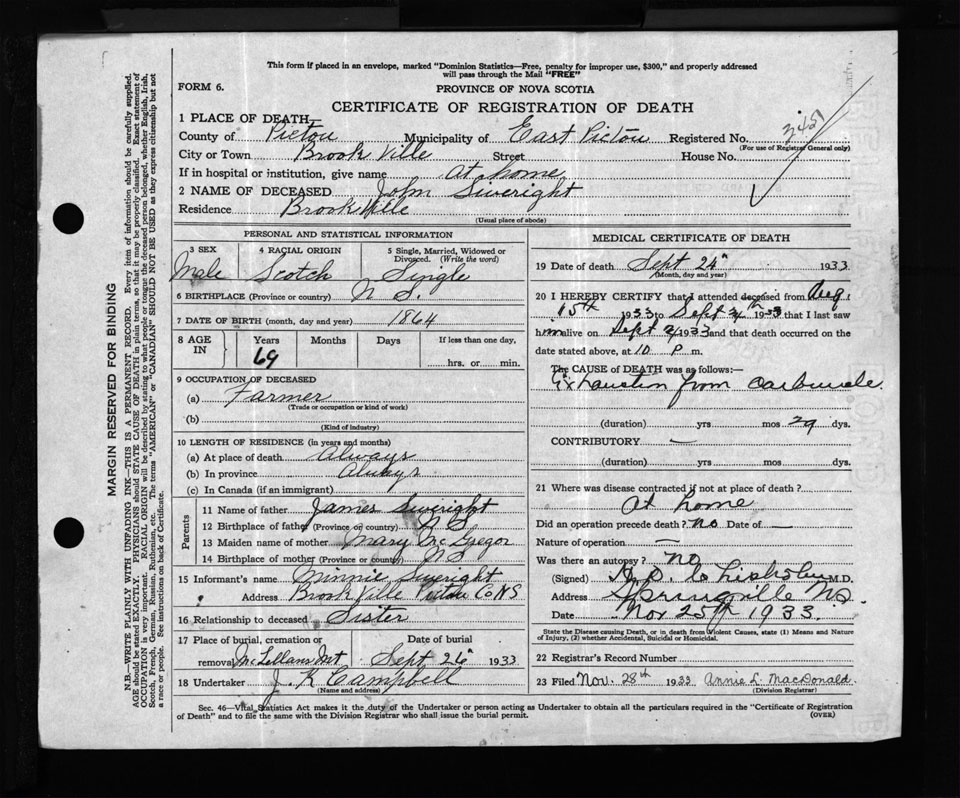 This form if placed in an envelope, marked "Dominion Statistics—Free, penalty for improper use, $300," and properly addressed
will pass through the Mail "FREE"
FORM 6.
PROVINCE OF NOVA SCOTIA
CERTIFICATE OF REGISTRATION OF DEATH
1 PLACE OF DEATH
County of Pictou Municipality of East Pictou Registered No.
(For use of Registrar General only)
City or Town Brook Ville Street House No.
If in hospital or institution, give name at home
2 NAME OF DECEASED John Sweright
Residence Brook Ville
(Usual place of abode)
PERSONAL AND STATISTICAL INFORMATION
3 SEX 4 RACIAL ORIGIN 5 Single, Married, Widowed or Divorced. (Write the word)
Male Scotch Single
6 BIRTHPLACE (Province or country) N S.
7 DATE OF BIRTH (month, day and year) 1864
8 AGE IN Years Months Days If less than one day,
69 hrs. or min.
9 OCCUPATION OF DECEASED
(a) Farmer
(Trade or occupation or kind of work)
(b)
(Kind of industry)
10 LENGTH OF RESIDENCE (in years and months)
(a) At place of death Always
(b) In province Always
(c) In Canada (if an immigrant)
Parents
11 Name of father James Sweright
12 Birthplace of father (Province or country) N S
13 Maiden name of mother Mary McGregor
14 Birthplace of mother (Province or country) N S
15 Informant's name Minnie Sweright
Address Brook Ville Pictou Co NS
16 Relationship to deceased Sister
17 Place of burial, cremation or removal McLellans Mt Date of burial Sept 26" 1933
18 Undertaker J. K Campbell
(Name and address)
MEDICAL CERTIFICATE OF DEATH
19 Date of death Sept 24" 1933
(Month, day and year)
20 I HEREBY CERTIFY that I attended deceased from Aug
15th 1933 to Sept 24th 1933 that I last saw
him alive on Sept 1933 and that death occurred on
date stated above, at 10 P m.
The CAUSE of DEATH was as follows:—
Exhaustion from carbuncle
(duration) yrs mos 29 dys.
CONTRIBUTORY —
(duration) yrs. mos. dys.
21 Where was disease contracted if not at place of death?
At home
Did an operation precede death? no Date of —
Nature of operation —
Was there an autopsy? NO
(Signed) Chisholm M.D.
Address Springville NS
Date Nov 25th 1933.
State the Disease causing Death, or in death from Violent Causes, state (1) Means and Nature
of Injury, (2) whether Accidental, Suicidal or Homicidal.
22 Registrar's Record Number
23 Filed Nov. 28th 1933 Annie L. MacDonald.
(Division Registrar)
Sec. 46—Vital Statistics Act makes it the duty of the Undertaker or person acting as Undertaker to obtain all the particulars required in the "Certificate of Registration
of Death" and to file the same with the Division Registrar who shall issue the burial permit. (OVER)
MARGIN RESERVED FOR BINDING
N.B.—WRITE PLAINLY WITH UNFADING INK—THIS IS A PERMANENT RECORD. Every item of information should be carefully supplied.
AGE should be stated EXACTLY. PHYSICIANS should STATE CAUSE OF DEATH in plain terms, so that it may be properly classified. Exact statement of
OCCUPATION is very important. RACIAL ORIGIN will be described by stating to what people or tongue the deceased person belonged, whether English, Irish,
Scotch, French, German, Russian, Ruthenian, etc. The terms "AMERICAN" or "CANADIAN" SHOULD NOT BE USED as they express citizenship but not
a race or people. See instructions on back of Certificate.